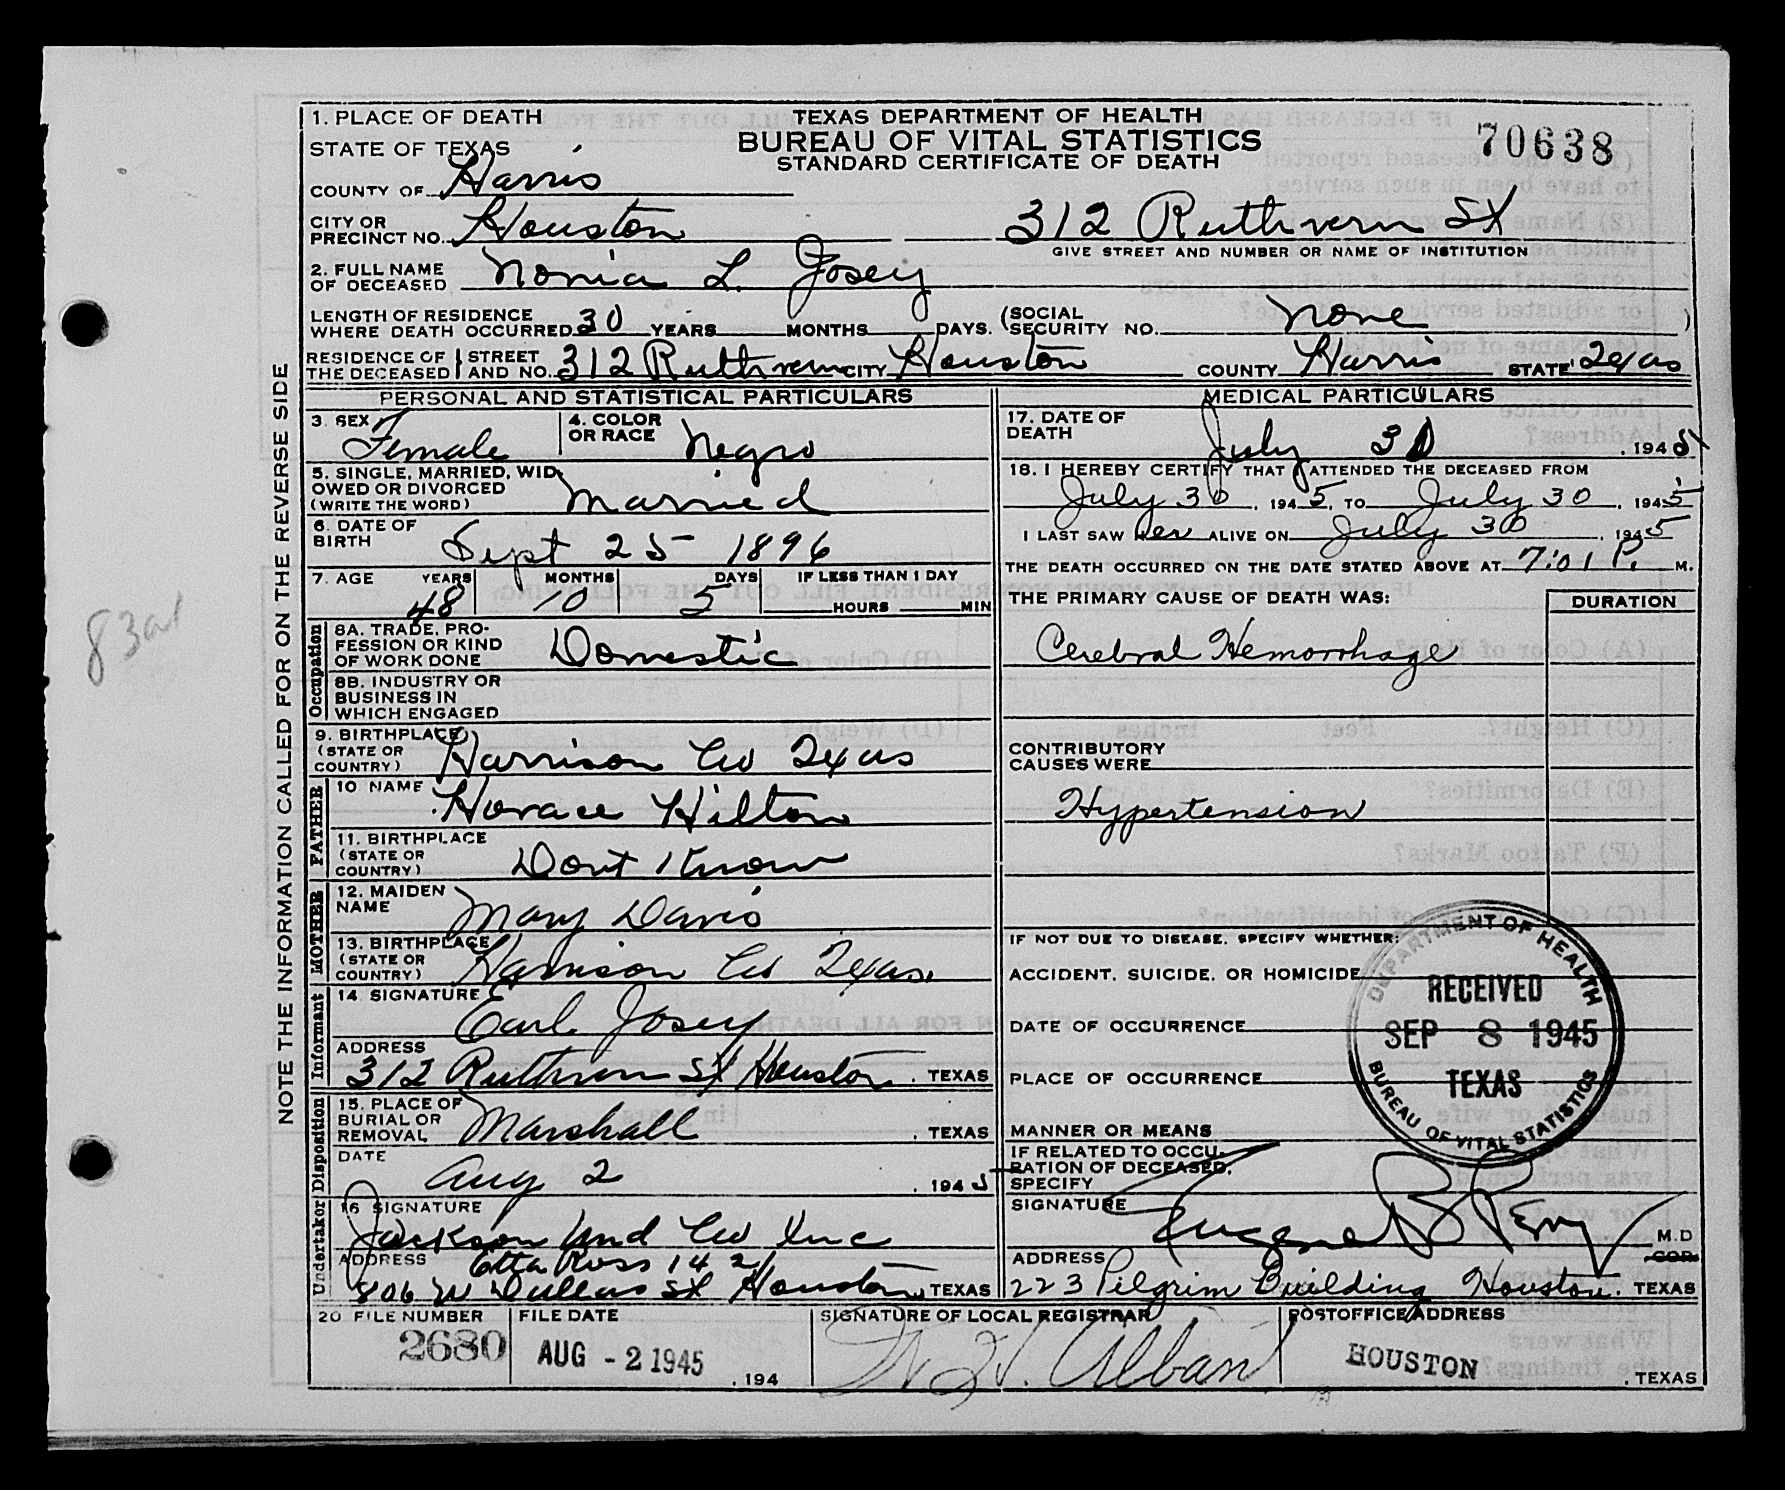 1. PLACE OF DEATH
STATE OF TEXAS
COUNTY OF Harris
TEXAS DEPARTMENT OF HEALTH
BUREAU OF VITAL STATISTICS
STANDARD CERTIFICATE OF DEATH
70638
CITY OR
PRECINCT NO. Houston
312 Ruthven St
GIVE STREET AND NUMBER OR NAME OF INSTITUTION
2. FULL NAME
OF DECEASED Nonia L. Josey
LENGTH OF RESIDENCE
WHERE DEATH OCCURRED 30 YEARS MONTHS DAYS. (SOCIAL
SECURITY NO. None )
RESIDENCE OF
THE DECEASED } STREET
AND NO. 312 Ruthven CITY Houston COUNTY Harris STATE Texas
PERSONAL AND STATISTICAL PARTICULARS
3. SEX Female
4. COLOR
OR RACE Negro
5. SINGLE, MARRIED, WID-
OWED OR DIVORCED
(WRITE THE WORD) Married
6. DATE OF
BIRTH Sept 25 1896
7. AGE YEARS MONTHS DAYS IF LESS THAN 1 DAY
48 10 5 HOURS MIN
Occupation
8A. TRADE, PRO-
FESSION OR KIND
OF WORK DONE Domestic
8B. INDUSTRY OR
BUSINESS IN
WHICH ENGAGED
9. BIRTHPLACE
(STATE OR
COUNTRY) Harrison Co Texas
FATHER
10 NAME Horace Hilton
11. BIRTHPLACE
(STATE OR
COUNTRY) Dont Know
MOTHER
12. MAIDEN
NAME Mary Davis
13. BIRTHPLACE
(STATE OR
COUNTRY) Harrison Co Texas.
Informant
14. SIGNATURE Earl Josey
ADDRESS
312 Ruthven St Houston, TEXAS
Disposition
15. PLACE OF
BURIAL OR
REMOVAL Marshall, TEXAS
DATE
Aug 2, 1945
Undertaker
16 SIGNATURE
Jackson Und Co Inc
ADDRESS Etta Ross 1421
806 W Dallas St Houston, TEXAS
MEDICAL PARTICULARS
17. DATE OF
DEATH July 30, 1945
18. I HEREBY CERTIFY THAT I ATTENDED THE DECEASED FROM
July 30, 1945, TO July 30, 1945
I LAST SAW her ALIVE ON July 30, 1945
THE DEATH OCCURRED ON THE DATE STATED ABOVE AT 7:01 P. M.
THE PRIMARY CAUSE OF DEATH WAS:
DURATION
Cerebral Hemorrhage
CONTRIBUTORY
CAUSES WERE
Hypertension
IF NOT DUE TO DISEASE, SPECIFY WHETHER:
ACCIDENT, SUICIDE, OR HOMICIDE
DATE OF OCCURRENCE
PLACE OF OCCURRENCE
MANNER OR MEANS
IF RELATED TO OCCU-
PATION OF DECEASED,
SPECIFY
DEPARTMENT OF HEALTH
RECEIVED
SEP 8 1945
TEXAS
BUREAU OF VITAL STATISTICS
SIGNATURE Eugene B Perry M.D
COR.
ADDRESS
223 Pilgrim Building Houston, TEXAS
20 FILE NUMBER
2680
FILE DATE
AUG - 2 1945, 194
SIGNATURE OF LOCAL REGISTRAR
POSTOFFICE ADDRESS
HOUSTON, TEXAS
NOTE THE INFORMATION CALLED FOR ON THE REVERSE SIDE